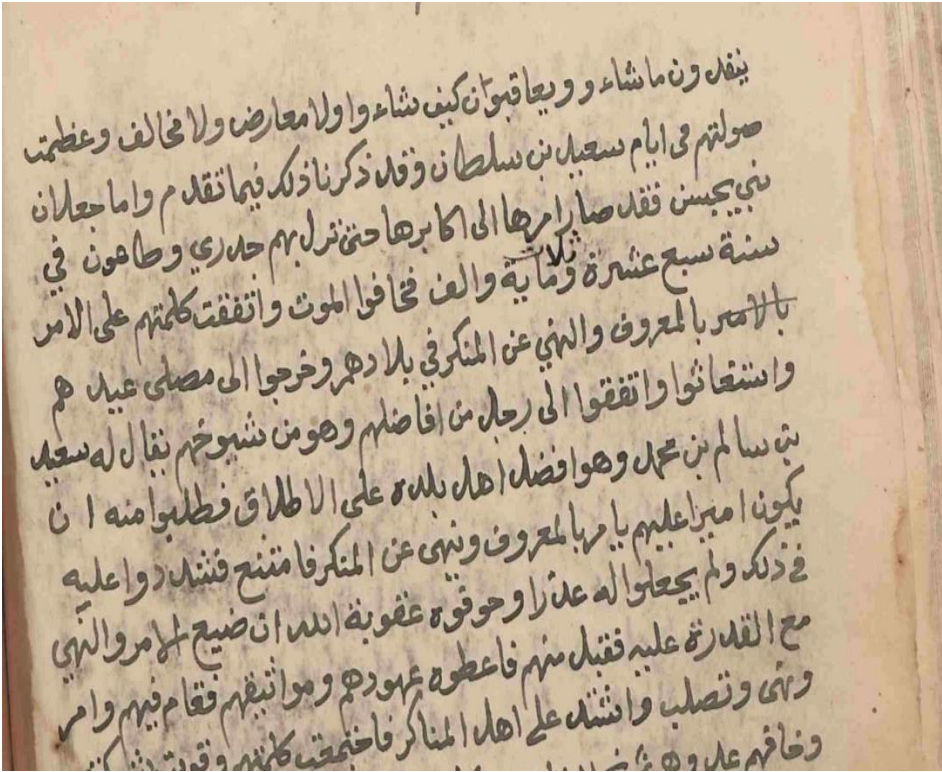 ينفدون ما شاء و ويعاقبوان كيف شاء وا ولا معارض ولا مخالف وعظمت
صولتهم في ايام سعيد بن سلطان وقد ذكرنا ذلك فيما تقدم واما جعلان
بني بحسن فقد صار امرها الى اكابرها حتى نزل بهم حدري وطاهون في
سنة سبع عشرة وثلاث ماية والف فخافوا الموت واتفقت كلمتهم على الامر
بالامر بالمعروف والنهي عن المنكر في بلادهم وخرجوا الى مصلى عيد هم
واستغاثوا واتفقوا الى رجل من افاضلهم وهو من شيوخهم يقال له سعيد
بن سالم بن محمد وهو افضل اهل بلده على الاطلاق فطلبوا منه ا ن
يكون اميرا عليهم يامر بالمعروف وينهى عن المنكر فامتنع فشددوا عليه
في ذلك ولم يجعلوا له عذرا وخوفوه عقوبة الله ان ضيع الامر والنهي
مع القدرة عليه فقبل منهم فاعطوه عهودهم ومواثيقهم فقام فيهم وامر
ونهى وتصلب واشتد على اهل المناكر فاجتمعت كلمتهم وقويت
وخافهم عدوهم